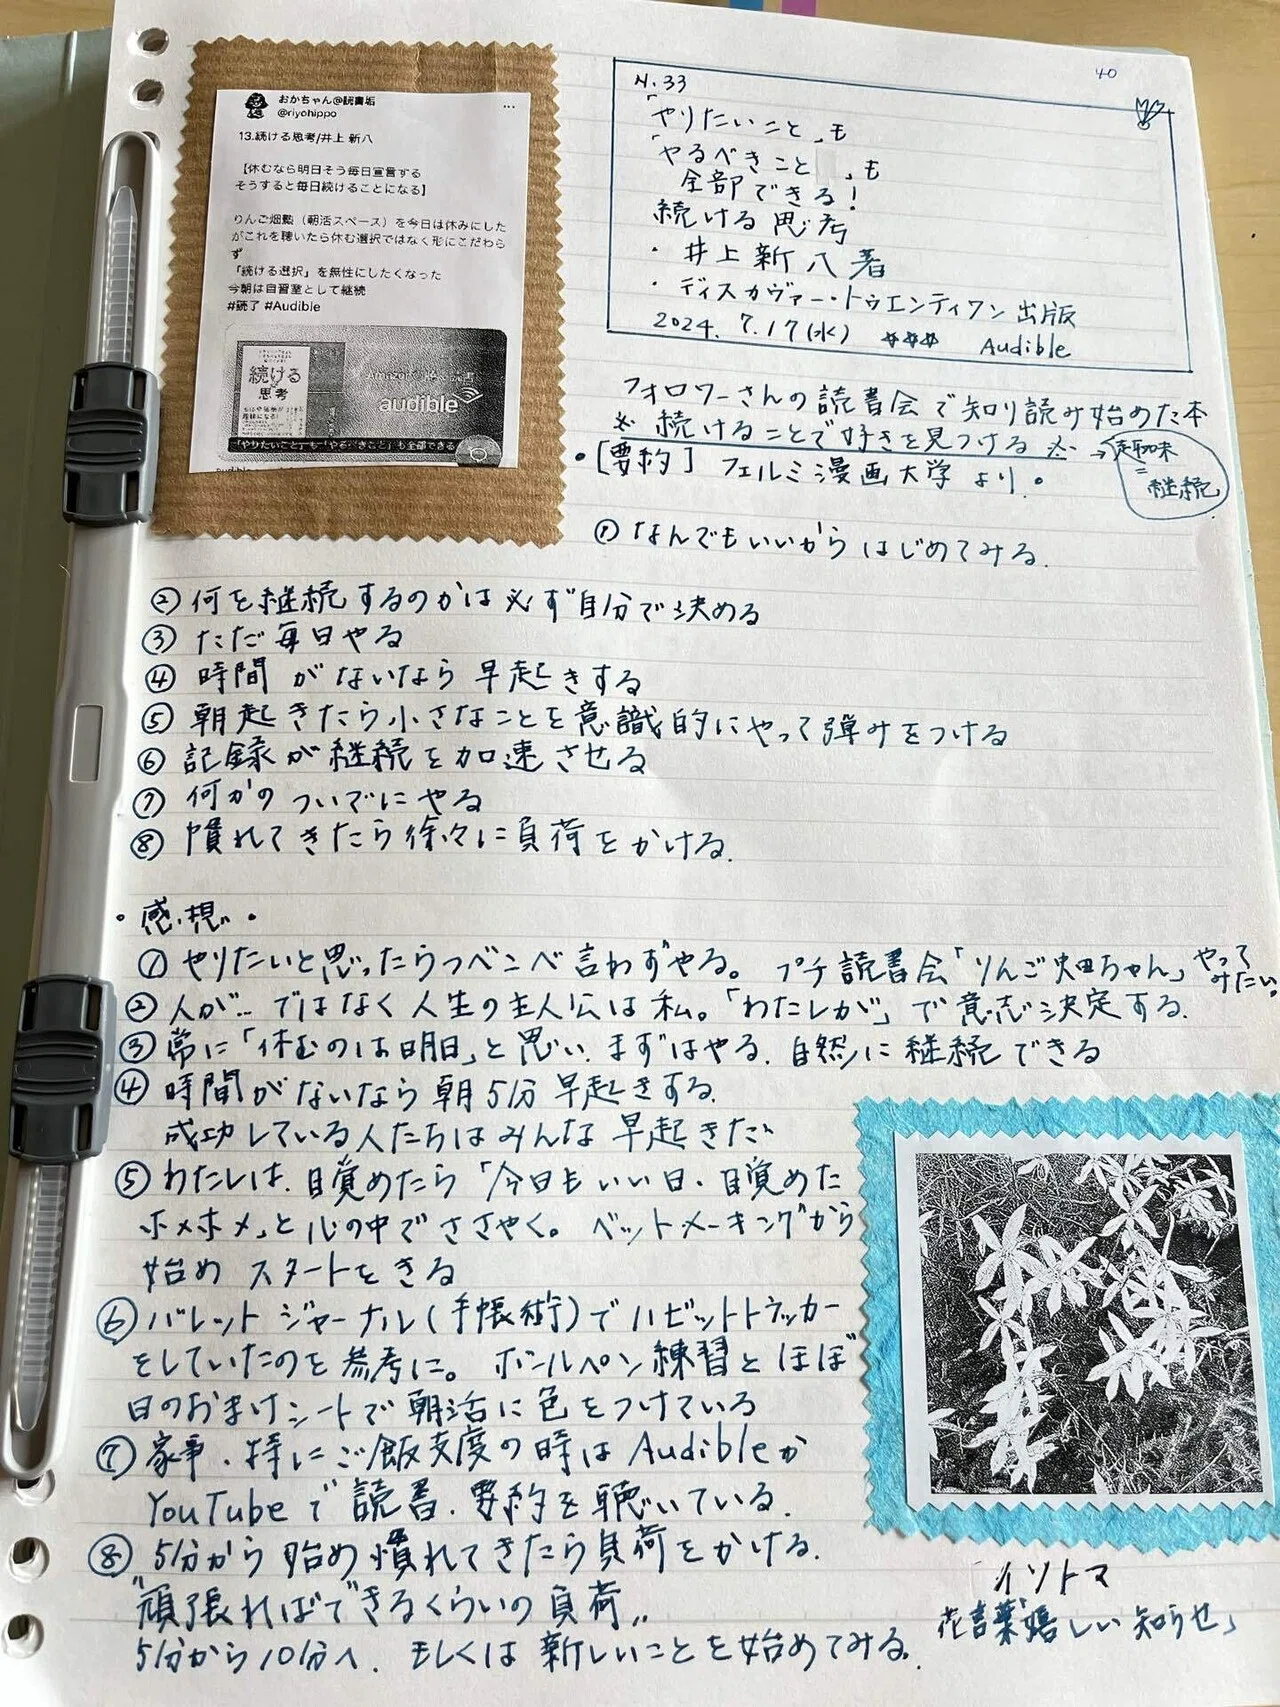 40
おかちゃん@読書垢
@riyohippo
…
13.続ける思考/井上 新八
【休むなら明日そう毎日宣言する
そうすると毎日続けることになる】
りんご畑塾（朝活スペース）を今日は休みにした
がこれを聴いたら休む選択ではなく形にこだわら
ず
「続ける選択」を無性にしたくなった
今朝は自習室として継続
#読了 #Audible
続ける
思考
audible
「やりたいこと」も「やるべきこと」も全部できる
N.33
「やりたいこと」も
「やるべきこと」も
全部できる!
続ける思考
・井上新八著
・ディスカヴァー・トゥエンティワン出版
2024. 7.17(水) ☆☆☆ Audible
フォロワーさんの読書会で知り読み始めた本
※ 続けることで好きを見つける ※ → 趣味
=
継続
・[要約] フェルミ漫画大学より。
① なんでもいいからはじめてみる.
② 何を継続するのかは必ず自分で決める
③ ただ毎日やる
④ 時間がないなら早起きする
⑤ 朝起きたら小さなことを意識的にやって弾みをつける
⑥ 記録が継続を加速させる
⑦ 何かのついでにやる
⑧ 慣れてきたら徐々に負荷をかける.
・感想・
① やりたいと思ったらつべこべ言わずやる。プチ読書会「りんご畑ちゃん」やって
みたい。
② 人が… ではなく人生の主人公は私。「わたしが」で意志決定する.
③ 常に「休むのは明日」と思い、まずはやる. 自然に継続できる
④ 時間がないなら朝5分早起きする.
成功している人たちはみんな早起きだ
⑤ わたしは、目覚めたら「今日もいい日・目覚めた
ホメホメ」と心の中でささやく。ベットメーキングから
始めスタートをきる
⑥ バレットジャーナル(手帳術)でハビットトラッカー
をしていたのを参考に。ボールペン練習とほぼ
日のおまけシートで朝活に色をつけている
⑦ 家事、特にご飯支度の時はAudibleか
YouTubeで読書、要約を聴いている.
⑧ 5分から始め慣れてきたら負荷をかける.
"頑張ればできるくらいの負荷"
5分から10分へ、もしくは新しいことを始めてみる.
「イソトマ
花言葉嬉しい知らせ」